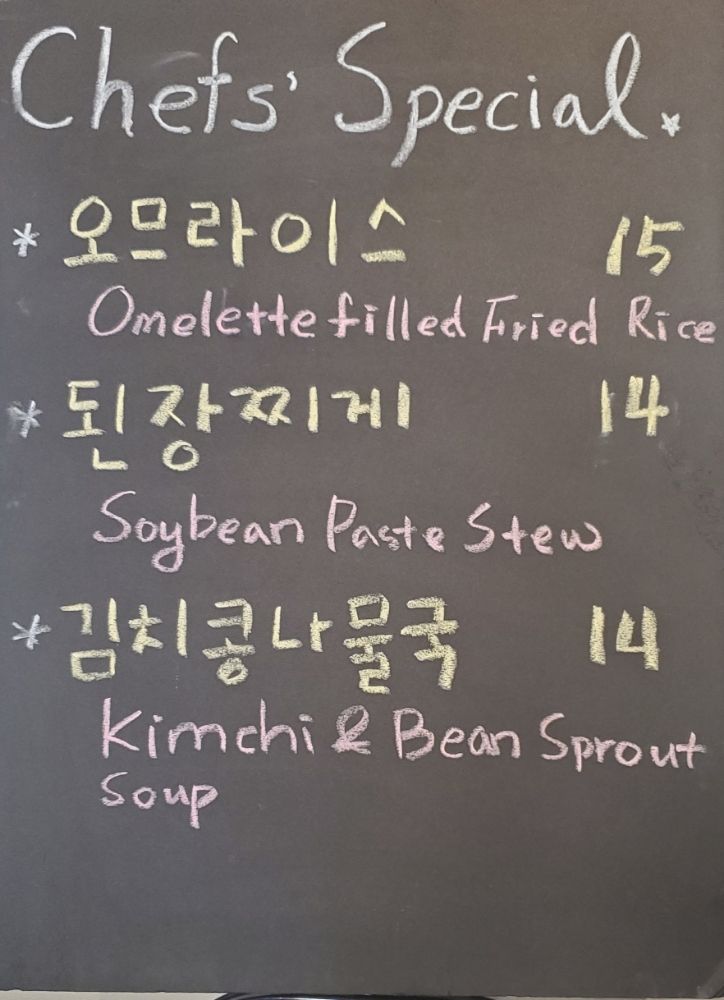 Chefs' Special.
* 오므라이스 15
Omelette filled Fried Rice
* 된장찌게 14
Soybean Paste Stew
* 김치콩나물국 14
Kimchi & Bean Sprout
Soup